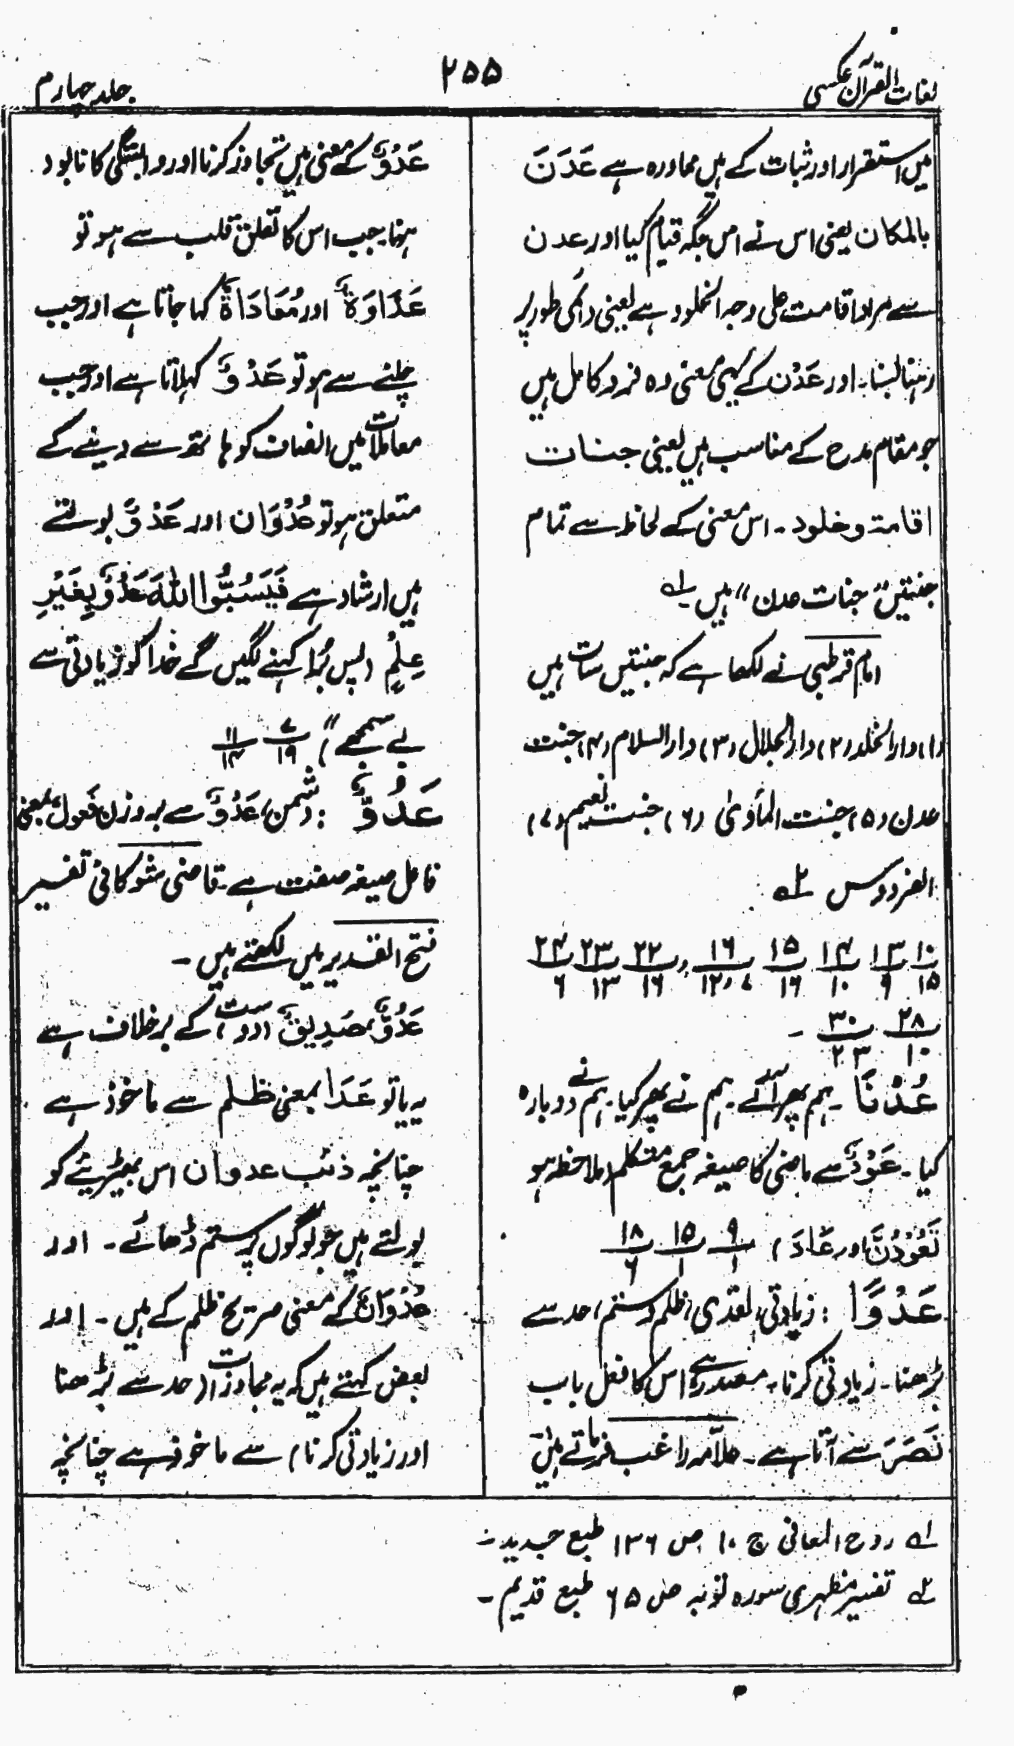 لغات القرآن عکسی
۲۵۵
جلد چہارم
میں استقرار اور ثبات کے ہیں محاورہ ہے عَدَنَ
بالمکان یعنی اس نے اس جگہ قیام کیا اور عدن
سے مراد اقامت علی وجہ الخلود ہے یعنی دائمی طور پر
رہنا بسنا۔ اور عَدْن کے یہی معنی وہ فرد کامل ہیں
جو مقام مدح کے مناسب ہیں یعنی جنات
اقامۃ و خلود۔ اس معنی کے لحاظ سے تمام
جنتیں "جنات عدن" ہیں لہ
امام قرطبی نے لکھا ہے کہ جنتیں سات ہیں
(۱) دار الخلد (۲) دار الجلال (۳) دار السلام (۴) جنت
عدن (۵) جنت المأویٰ (۶) جنت نعیم (۷)
الفردوس ۲ہ
۱۰/۱۵ ۱۳/۹ ۱۴/۱۰ ۱۵/۱۶ ۱۶/۱۲،۷ ، ۲۲/۱۶ ۲۳/۱۳ ۲۴/۶
۲۸/۱۰ ۳۰/۲۳ ۔
عُدْنَا ۔ ہم پھر آئے۔ ہم نے پھر کیا۔ ہم نے دوبارہ
کیا۔ عَوْدٌ سے ماضی کا صیغہ جمع متکلم (ملاحظہ ہو
تَعُوْدُنَّ اور عَادَ) ۹/۱ ۱۵/۱ ۱۸/۶
عَدْوًا : زیادتی، تعدی، ظلم و ستم، حد سے
بڑھنا۔ زیادتی کرنا۔ مصدر ہے اس کا فعل باب
نَصَرَ سے آتا ہے۔ علامہ راغب فرماتے ہیں
عَدْوٌ کے معنی ہیں تجاوز کرنا اور وابستگی کا نابود
ہونا۔ جب اس کا تعلق قلب سے ہو تو
عَدَاوَۃٌ اور مُعَادَاۃٌ کہا جاتا ہے اور جب
چلنے سے ہو تو عَدْوٌ کہلاتا ہے اور جب
معاملات میں انصاف کو ہاتھ سے دینے کے
متعلق ہو تو عُدْوَان اور عَدْوٌ بولتے
ہیں ارشاد ہے فَیَسُبُّوا اللہَ عَدْوًا بِغَیْرِ
عِلْمٍ (پس بُرا کہنے لگیں گے خدا کو زیادتی سے
بے سمجھے") ۷/۱۹ ۱۱/۱۴
عَدُوٌّ : دشمن، عَدْوٌ سے بہ وزن فَعول بمعنی
فاعل صیغہ صفت ہے۔ قاضی شوکانی تفسیر
فتح القدیر میں لکھتے ہیں۔
عَدُوٌّ، صَدِیقٌ (دوست) کے برخلاف ہے
یہ یا تو عَدَا بمعنی ظلم سے ماخوذ ہے
چنانچہ ذئب عدوان اس بھیڑیئے کو
بولتے ہیں جو لوگوں پر ستم ڈھائے۔ اور
عُدْوَانٌ کے معنی صریح ظلم کے ہیں۔ اور
بعض کہتے ہیں کہ یہ مجاوزات (حد سے بڑھنا
اور زیادتی کرنا) سے ماخوذ ہے چنانچہ
لہ روح المعانی ج ۱۰ ص ۱۳۶ طبع جدید۔
۲ہ تفسیر مظہری سورہ توبہ ص ۶۵ طبع قدیم۔